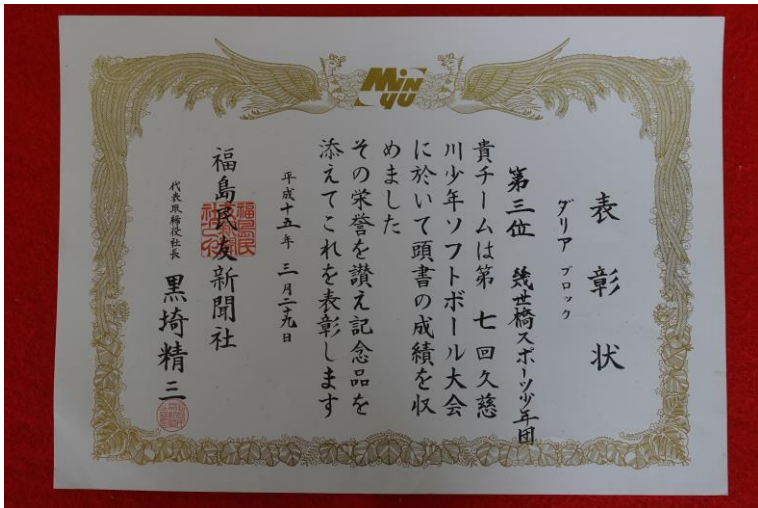 MiN
yu
表彰状
ダリア ブロック
第三位 幾世橋スポーツ少年団
貴チームは第七回久慈
川少年ソフトボール大会
に於いて頭書の成績を収
めました
その栄誉を讃え記念品を
添えてこれを表彰します
平成十五年 三月二十九日
福島民友新聞社
代表取締役社長 黒埼精三